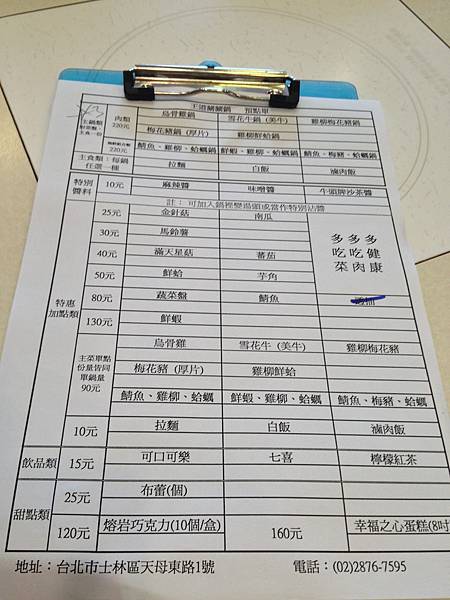 王道涮涮鍋 預點單
主鍋類 肉類 220元 烏骨雞鍋 雪花牛鍋(美牛) 雞柳梅花豬鍋
附菜盤、主食一份 梅花豬鍋(厚片) 雞柳鮮蛤鍋
220元 鯖魚、雞柳、蛤蠣鍋 鮮蝦、雞柳、蛤蠣鍋 鯖魚、梅豬、蛤蠣鍋
主食類:每鍋任選一種 拉麵 白飯 滷肉飯
特別醬料 10元 麻辣醬 味噌醬 牛頭牌沙茶醬
註: 可加入鍋裡變湯頭或當作特別沾醬
特惠加點類
25元 金針菇 南瓜
30元 馬鈴薯
40元 滿天星菇 番茄
50元 鮮蛤 芋角
多多多
吃吃健
菜肉康
80元 蔬菜盤 鯖魚
130元 鮮蝦
主菜單點份量皆同單鍋量 90元
烏骨雞 雪花牛(美牛) 雞柳梅花豬
梅花豬(厚片) 雞柳鮮蛤
鯖魚、雞柳、蛤蠣 鮮蝦、雞柳、蛤蠣 鯖魚、梅豬、蛤蠣
10元 拉麵 白飯 滷肉飯
飲品類 15元 可口可樂 七喜 檸檬紅茶
甜點類
25元 布蕾(個)
120元 熔岩巧克力(10個/盒) 160元 幸福之心蛋糕(8吋
地址:台北市士林區天母東路1號 電話:(02)2876-7595